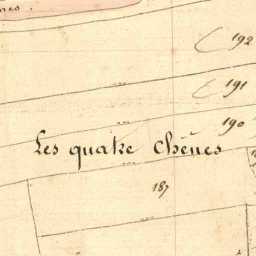 192
191
190
Les quatre Chênes
187